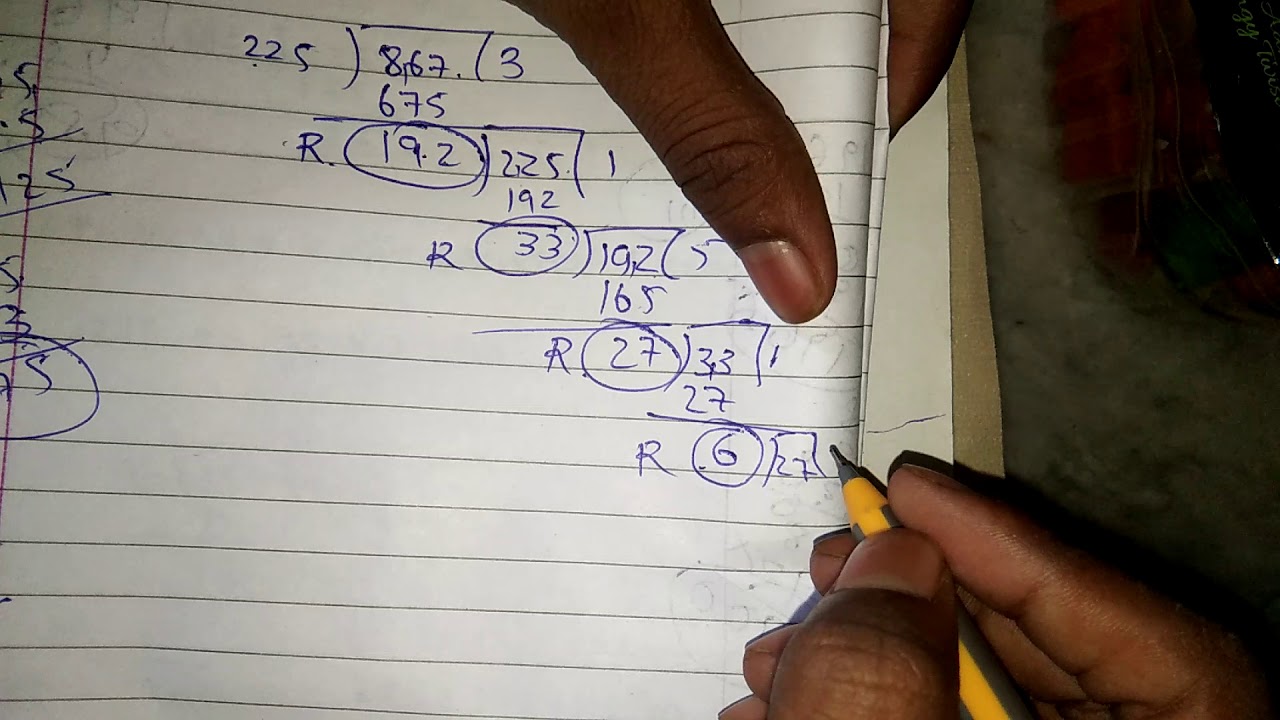 225 ) 867 ( 3
675
R 192 ) 225 ( 1
192
R 33 ) 192 ( 5
165
R 27 ) 33 ( 1
27
R 6 ) 27 (